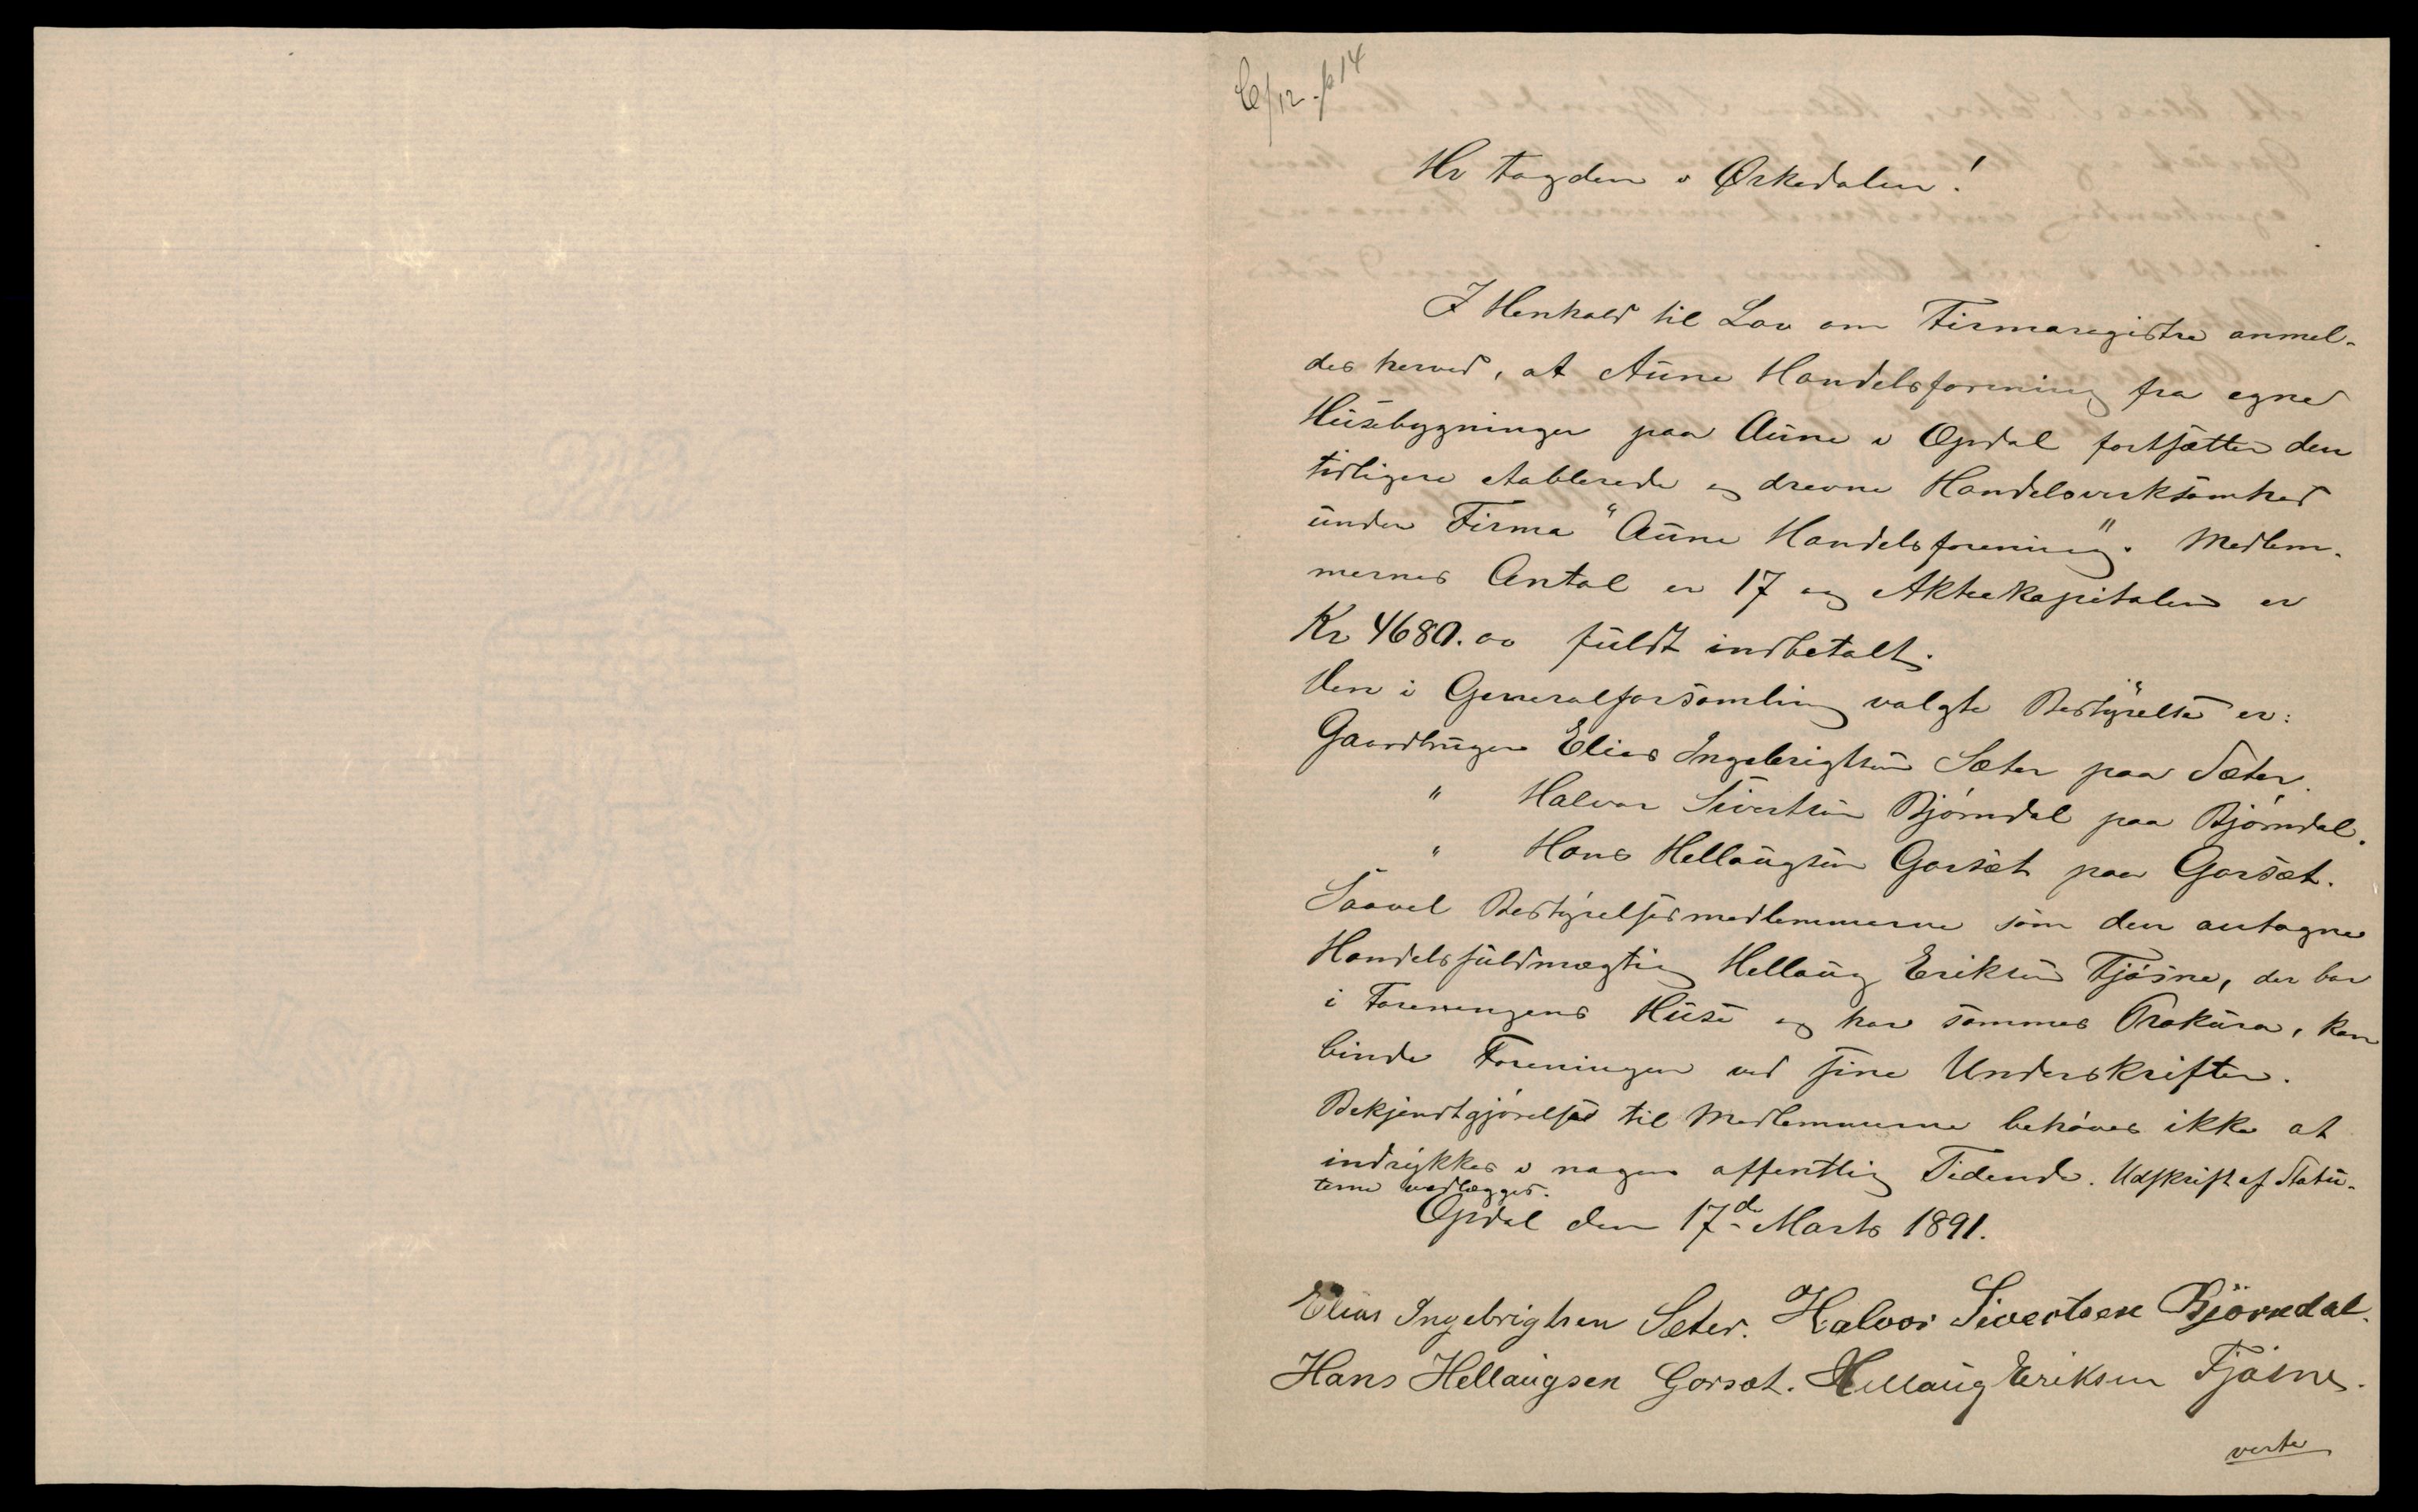 Hr Fogden i Ørkedalen!
I Henhold til Lov om Firmaregistre anmel-
des herved, at Aune Handelsforening fra egne
Husebygninger paa Aune i Opdal fortsætter den
tidligere etablerede og drevne Handelsvirksomhed
under Firma "Aune Handelsforening". Medlem-
mernes Antal er 17 og Aktiekapitalen er
Kr 4680.00 fuldt indbetalt.
Den i Generalforsamling valgte Bestyrelse er:
Gaardbruger Elias Ingebrigtsen Sæter paa Sæter.
" Halvor Sivertsen Bjørndal paa Bjørndal.
" Hans Hellaugsen Gorsæt paa Gorsæt.
Saavel Bestyrelsesmedlemmerne som den antagne
Handelsfuldmægtig Hellaug Eriksen Fjøsne, der bor
i Foreningens Huse og har sammes Prokura, kan
binde Foreningen ved sine Underskrifter.
Bekjendtgjørelser til Medlemmerne behøves ikke at
indrykkes i nogen offentlig Tidende. Udskrift af Statu-
terne vedlægges.
Opdal den 17de Marts 1891.
Elias Ingebrigtsen Sæter. Halvor Sivertsen Bjørndal.
Hans Hellaugsen Gorsæt. Hellaug Eriksen Fjøsne.
verte